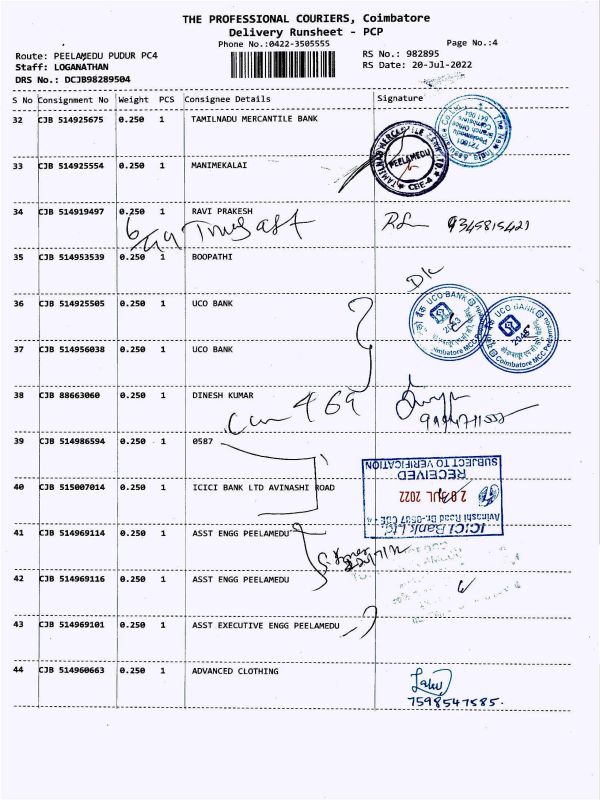 THE PROFESSIONAL COURIERS, Coimbatore
Delivery Runsheet - PCP
Phone No.:0422-3505555
Page No.:4
Route: PEELAMEDU PUDUR PC4
RS No.: 982895
Staff: LOGANATHAN
RS Date: 20-Jul-2022
DRS No.: DCJB98289504
S No Consignment No Weight PCS Consignee Details Signature
32 CJB 514925675 0.250 1 TAMILNADU MERCANTILE BANK
PEELAMEDU
CBE-4
33 CJB 514925554 0.250 1 MANIMEKALAI
34 CJB 514919497 0.250 1 RAVI PRAKESH
9345815421
35 CJB 514953539 0.250 1 BOOPATHI
36 CJB 514925505 0.250 1 UCO BANK
UCO BANK
UCO BANK
Coimbatore MCC
Coimbatore MCC
37 CJB 514956038 0.250 1 UCO BANK
38 CJB 88663060 0.250 1 DINESH KUMAR
469
39 CJB 514986594 0.250 1 0587
40 CJB 515007014 0.250 1 ICICI BANK LTD AVINASHI ROAD
ICICI Bank Ltd.
Avinashi Road Br.-0587 CBE - 4
20 JUL 2022
RECEIVED
SUBJECT TO VERIFICATION
41 CJB 514969114 0.250 1 ASST ENGG PEELAMEDU
42 CJB 514969116 0.250 1 ASST ENGG PEELAMEDU
43 CJB 514969101 0.250 1 ASST EXECUTIVE ENGG PEELAMEDU
44 CJB 514960663 0.250 1 ADVANCED CLOTHING
7598547585.